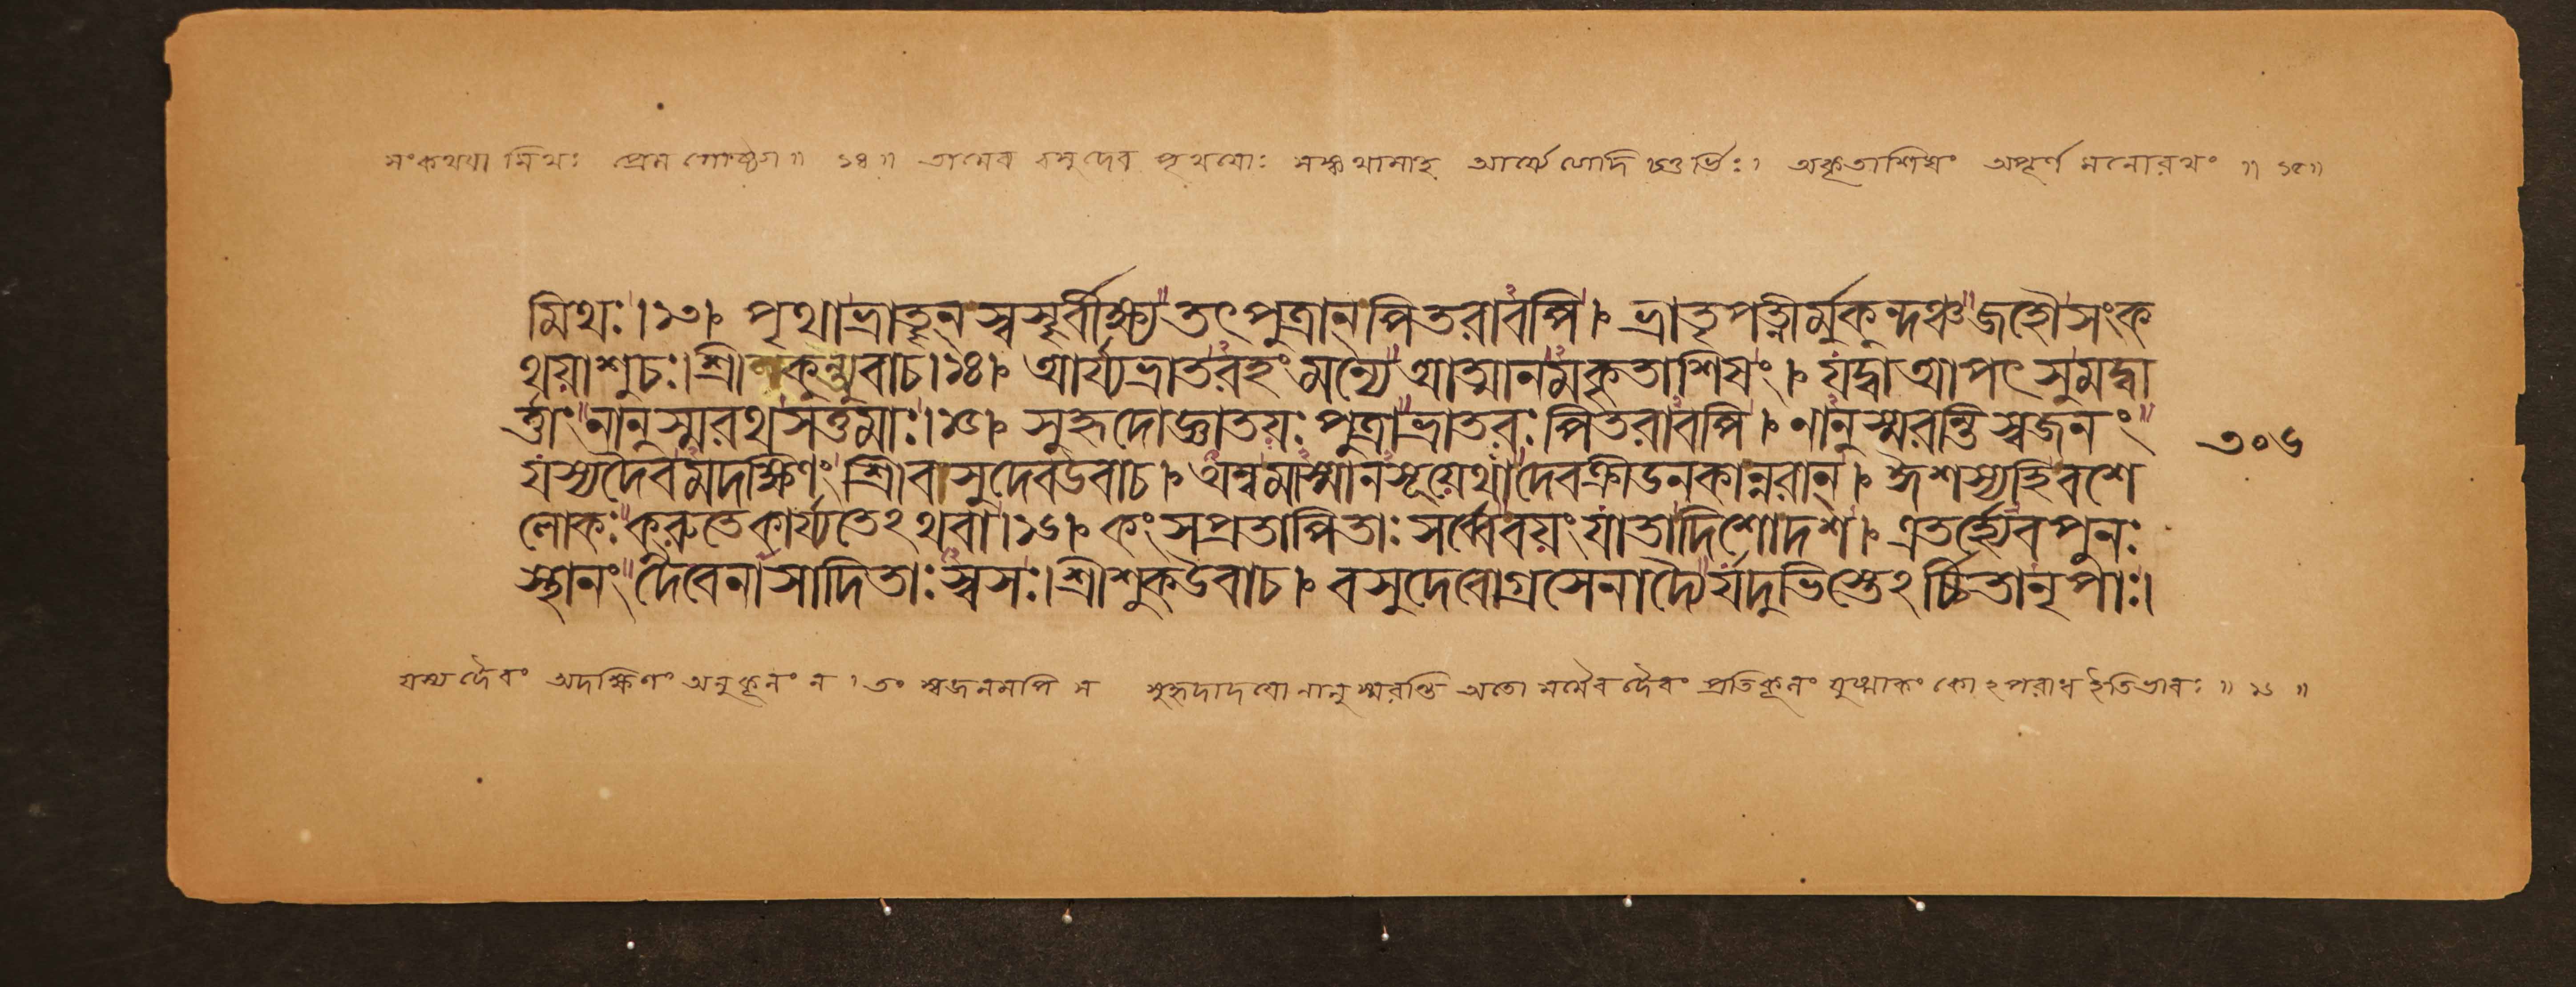 সংকথযা মিথঃ প্রেম গোষ্ঠ্যা ॥ ১৪ ॥ তামেব বসুদেব পৃথযোঃ সঙ্কথামাহ আর্য্যেত্যাদি চতুর্ভিঃ। অকৃতাশিষং অপূর্ণ মনোরথং ॥ ১৫॥
মিথঃ।১৩। পৃথাভ্রাতৄন স্বসৄর্বীক্ষ্যৈ তৎপুত্রান্পিতরাবপি। ভ্রাতৃপত্নীর্মুকুন্দঞ্চ জহৌসংক
থয়াশুচঃ।শ্রী কুন্ত্যুবাচ।১৪। আর্য্যভ্রাতরহংমন্যে আত্মানমকৃতাশিষং। যদ্বাআপৎসুমদ্বা
র্ত্তাং নানুস্মরথসত্তমাঃ।১৫। সুহৃদোজ্ঞাতয়ঃ পুত্রাভ্রাতরঃ পিতরাবপি। নানুস্মরন্তিস্বজনং
যস্যদৈবমদক্ষিণং শ্রীবাসুদেবউবাচ। অম্বমাস্মানসূয়েথা দেবক্রীডনকান্নরান্। ঈশস্যহিবশে
লোকঃ করুতেকার্য্যতেঽথবা।১৬। কংসপ্রতাপিতাঃ সর্ব্বেবয়ংযাতাদিশোদশ। এতর্হ্যেবপুনঃ
স্থানং দৈবেনাসাদিতাঃস্বসঃ।শ্রীশুকউবাচ। বসুদেবোগ্রসেনাদ্যৈর্যদুভিস্তেঽর্চ্চিতানৃপাঃ।
৩০৬
যস্য দৈবং অদক্ষিণং অনুকূলং ন। তং স্বজনমপি ন সুহৃদাদযো নানুস্মরন্তি অতো মমৈব দৈবং প্রতিকূলং যুষ্মাকং কোঽপরাধ ইতিভাবঃ ॥ ১৬ ॥